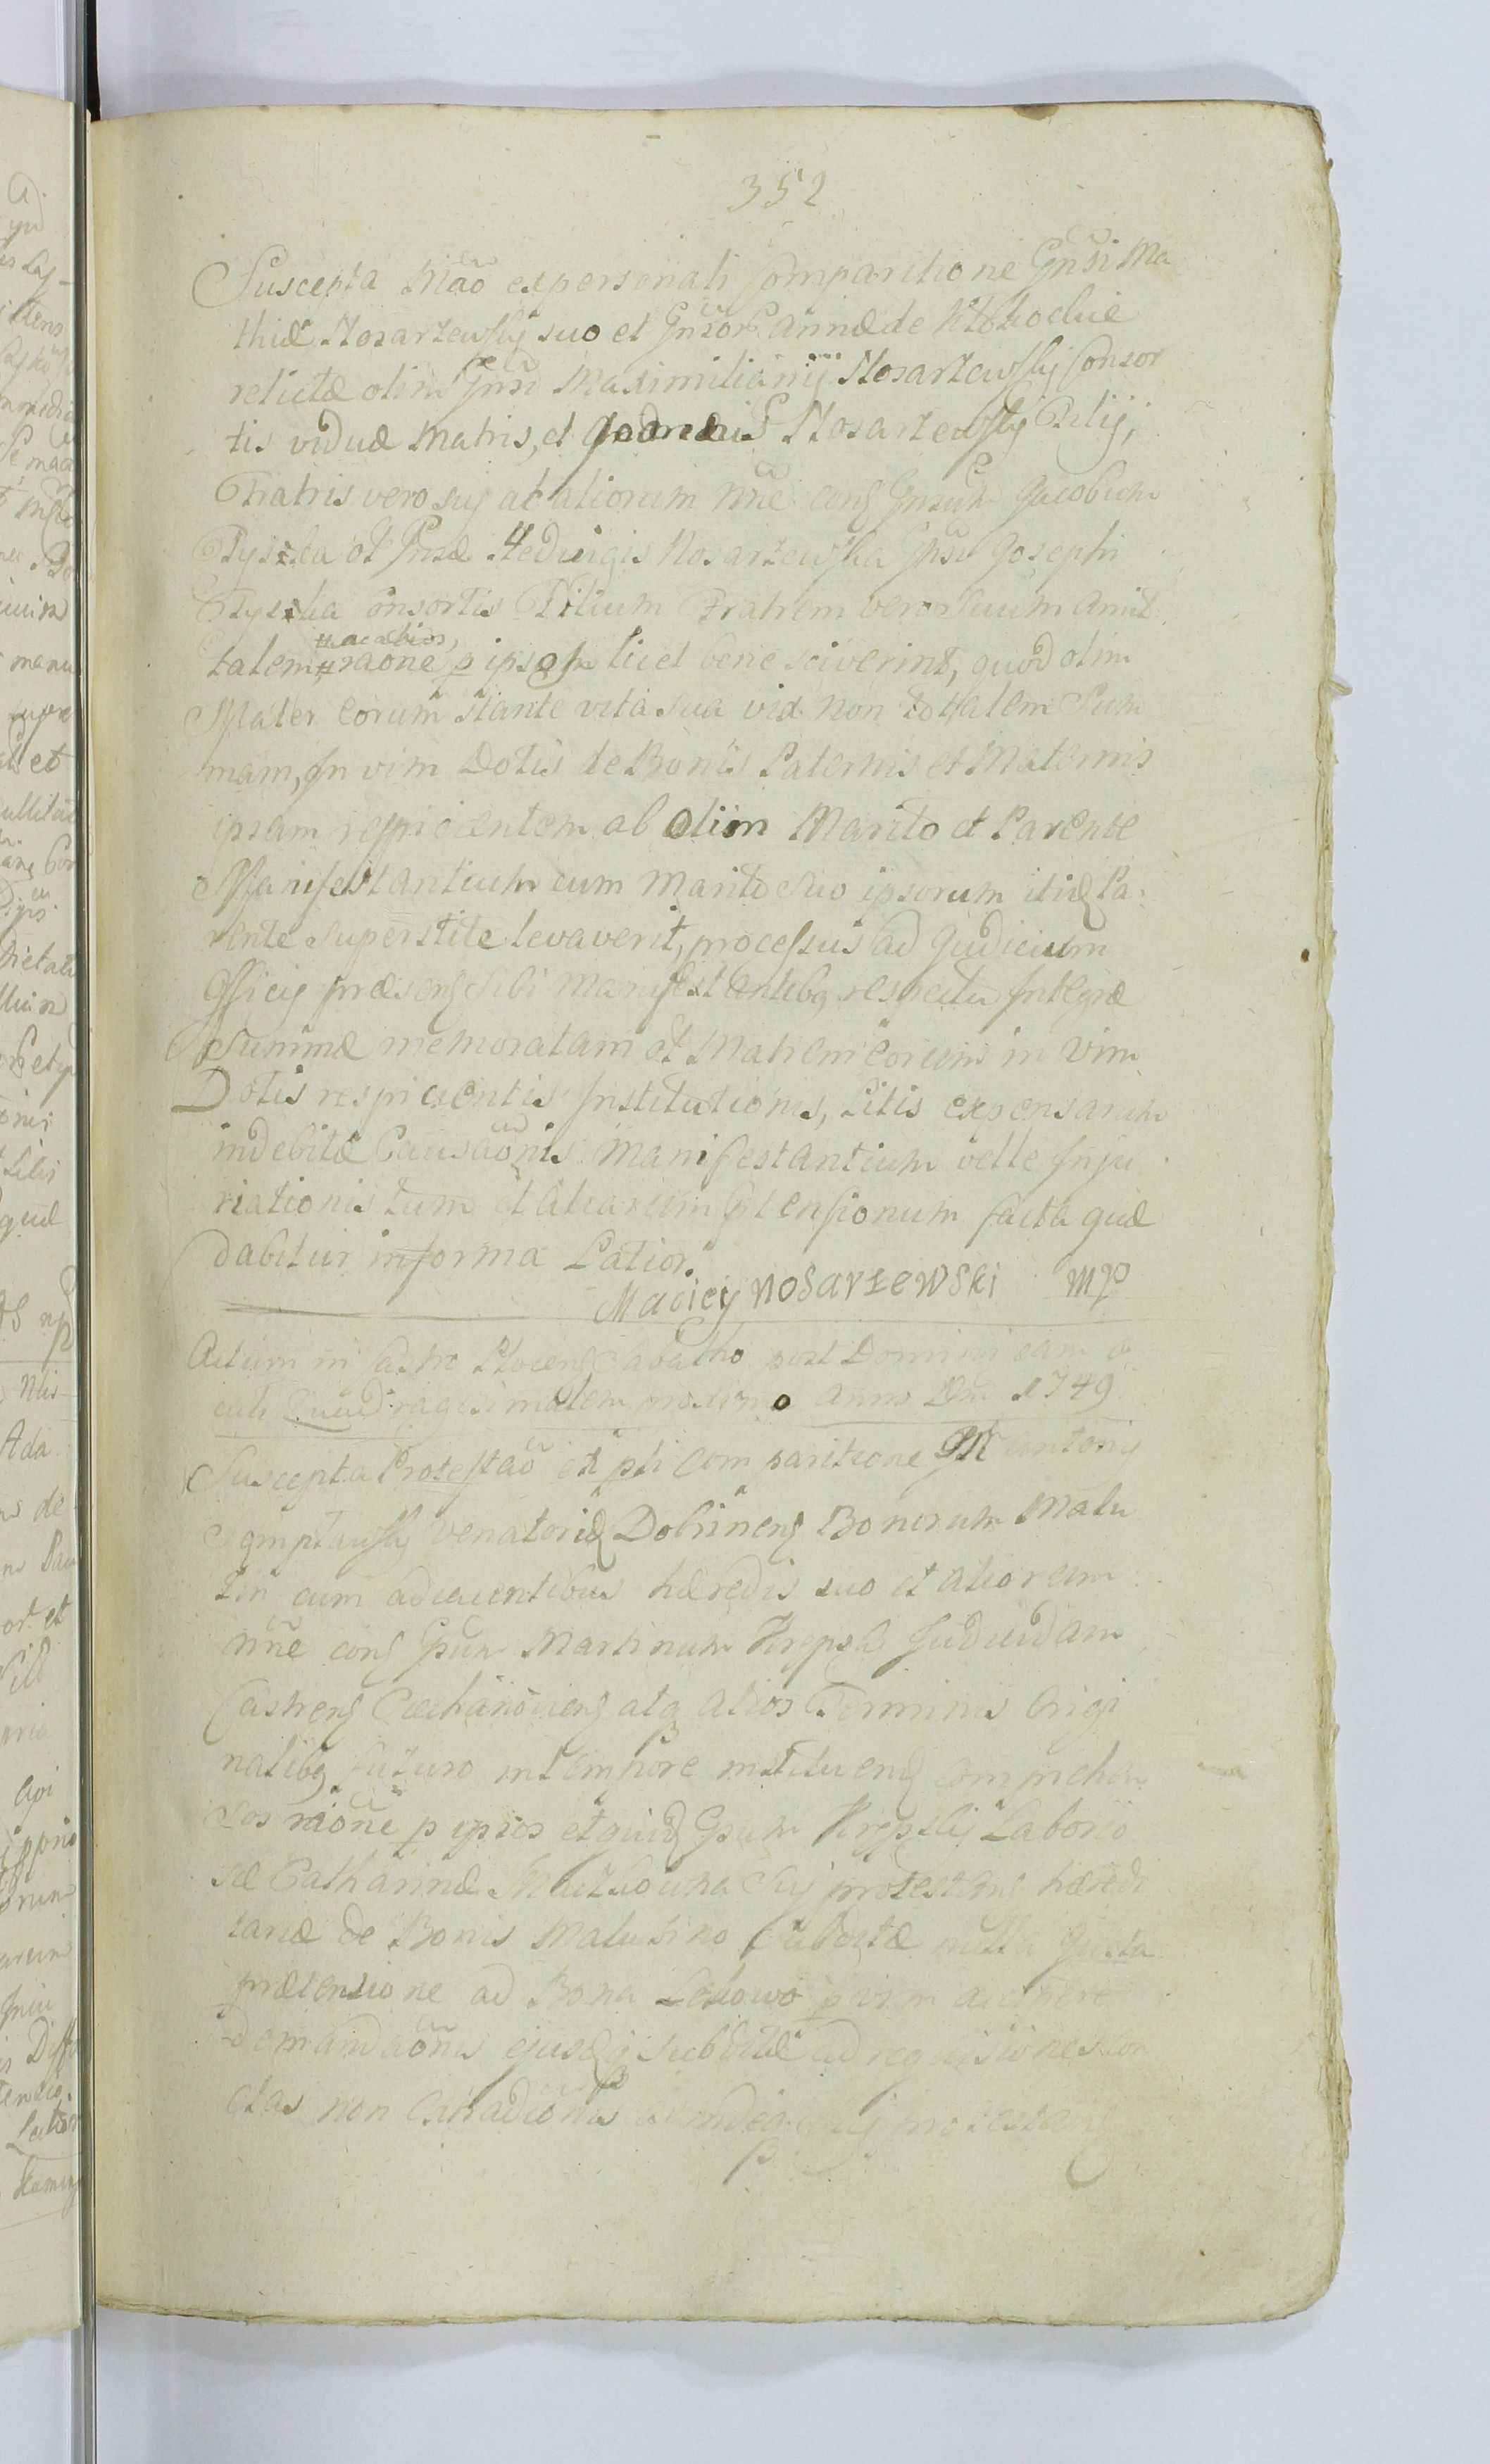 352
Suscepta Mãõ ex personali Comparitione Gnsi Ma
thiæ Nosarzewskij suo et Gnsor Annæ de
relictæ olim Gnsi Maximilianij Nosarzewskij Consor
tis viduæ Matris, et Nosarzewskij Filij,
Fratris vero suj ac aliorum nñe cons Gnsum Jacobum
et Gnsæ Hedvigis Nosarzewska Gnsi Josephi
Consortis Filium Fratrem vero Suum Amit
ac alios,
talem, raõne p ipsos licet bene sciverint, quod olim
Mater eorum stante vita sua vix non totalem Sum
mam, In vim Dotis de Bonis Paternis et Maternis
ipsam respicientem ab olim Marito et Parente
Manifestantium cum Marito suo ipsorum itidq Pa
rente superstite levaverit, processus ad Judicium
Officij præsens sibi Manifestantibq respectu Integræ
Summæ memoratam et Matrem eorum in Vim
Dotis respicientis Institutionis, Litis expensarum
indebitæ Causaõnis Manifestantium velle Inju
riationis tum et aliarum Ptensionum facta quæ
dabitur in forma Latior.
Maciey Nosarzewski mp
Actum in Castro Plocens Sabatho post Dominicam
culi Quadragesimalem proximo Anno Dni 1749
Suscepta Protestaõ ex pli Comparitione Antonij
Venatoridq Dobrinens Bonorum Malu
zin cum adiacentibus hæredis suo et aliorum
nñe cons Gsum Martinum Krepskj Judicidam
Castrens Ciechanoviens atq alios Terminis Origi
nalibq futuro in tempore instituend comprehen
sos raõne p ipsos et quidq Gsum Krepskij Laborio
sæ Catharinæ suj protestans hæredi
tariæ de Bonis Maluzino Subditæ nulla Justa
prætensione ad Bona p vim accipere
demandaõnis ejusdq subditæ ad requisitiones
ctas non Extradiõnis protestan